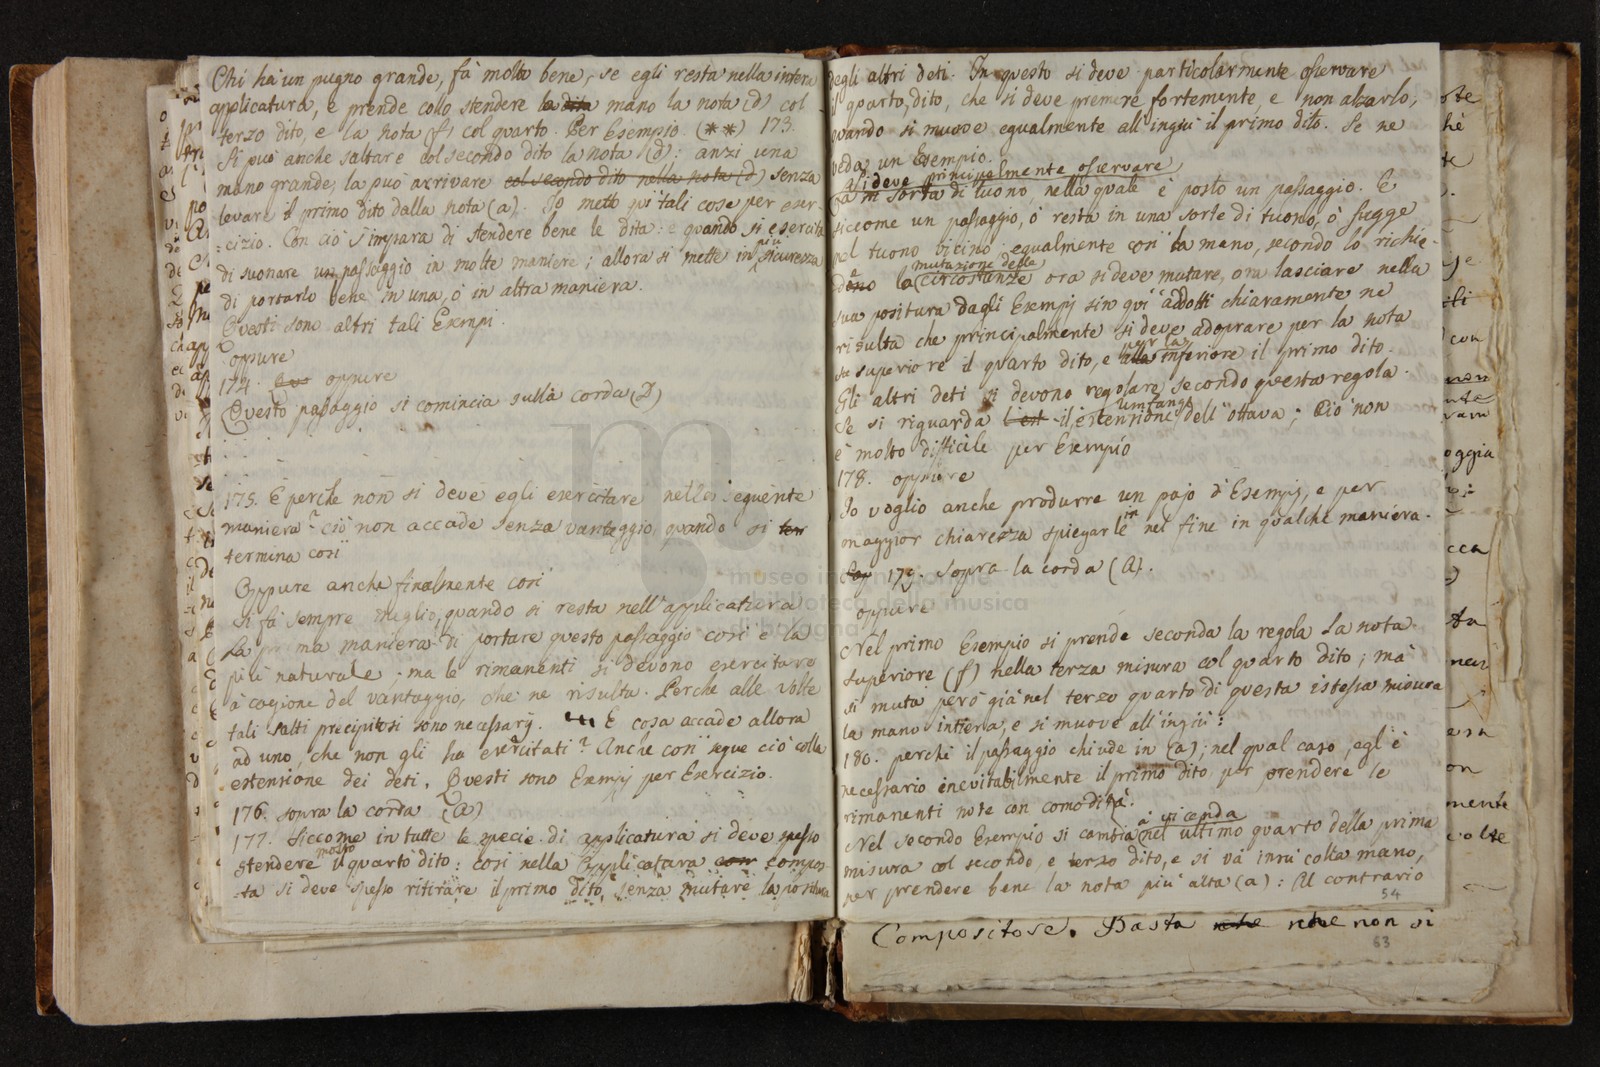 Chi hà un pugno grande, fà molto bene, se egli resta nella intera
applicatura, e prende collo stendere la mano la nota (d) col
terzo dito, e la nota (f) col quarto. Per Esempio (**) 173.
Si può anche saltare col secondo dito la nota (d): anzi una
mano grande, la può arrivare col secondo dito nella nota (d) senza
levare il primo dito dalla nota (a). Io metto qui tali cose per eser-
:cizio. Con ciò s'impara di stendere bene le dita: e quando si esercita
di suonare un passaggio in molte maniere; allora si mette in più sicurezza
di portarlo bene in una, ò in altra maniera.
Questi sono altri tali Esempi.
oppure
174. oppure
Questo passaggio si comincia sullà corda (D)
175. E perche non si deve egli esercitare nella seguente
maniera? ciò non accade senza vantaggio, quando si ter
termina così
Oppure anche finalmente così
Si fà sempre meglio, quando si resta nell'applicatura
La prima maniera di portare questo passaggio così è la
più naturale; ma le rimanenti si devono esercitare
à cagione del vantaggio, che ne risulta. Perche alle volte
tali salti precipitosi sono necessarij. E cosa accade allora
ad uno, che non gli ha esercitati? Anche così segue ciò colla
estensione dei deti. Questi sono Esempij per Esercizio.
176. sopra la corda (a)
177. Siccome in tutte le specie di applicatura si deve spesso
stendere molto il quarto dito: così nella Applicatura com compos-
ta si deve spesso ritirare il primo dito, senza mutare la positura
degli altri deti. In questo si deve particolarmente osservare
il quarto, dito, che si deve premere fortemente, e non alzarlo,
quando si muove egualmente all'ingiù il primo dito. Se ne
veda un Esempio.
178. si deve principalmente osservare
La in sorta di tuono, nella quale è posto un passaggio. E
siccome un passaggio, ò resta in una sorte di tuono, ò fugge
nel tuono vicino; egualmente così la mano, secondo lo richie-
dono la mutazione della circostanze ora si deve mutare, ora lasciare nella
sua positura dagli Esempij sin quì addotti chiaramente ne
risulta che principalmente si deve adoprare per la nota
superiore il quarto dito, e alla per la inferiore il primo dito.
Gli altri deti si devono regolare secondo questa regola.
Se si riguarda l'est il estensione Umfang dell'ottava; Ciò non
è molto difficile per Esempio
178. oppure
Io voglio anche produrre un pajo d'Esempij, e per
maggior chiarezza spiegarle in nel fine in qualche maniera.
179. sopra la corda (A).
oppure
Nel primo Esempio si prende seconda la regola la nota
superiore (f) nella terza misura col quarto dito; mà
si muta però già nel terzo quarto di questa istessa misura
la mano intiera, e si muove all'ingiù:
180. perchè il passaggio chiude in (a); nel qual caso, egl'è
necessario inevitabilmente il primo dito per prendere le
rimanenti note con comodità.
Nel secondo Esempio si cambia à vicenda nel ultimo quarto della prima
misura col secondo, e terzo dito, e si và insù colla mano,
per prendere bene la nota più alta (a): Al contrario
54
Compositose. Basta che non si
63
museo internazionale
e biblioteca della musica
di bologna